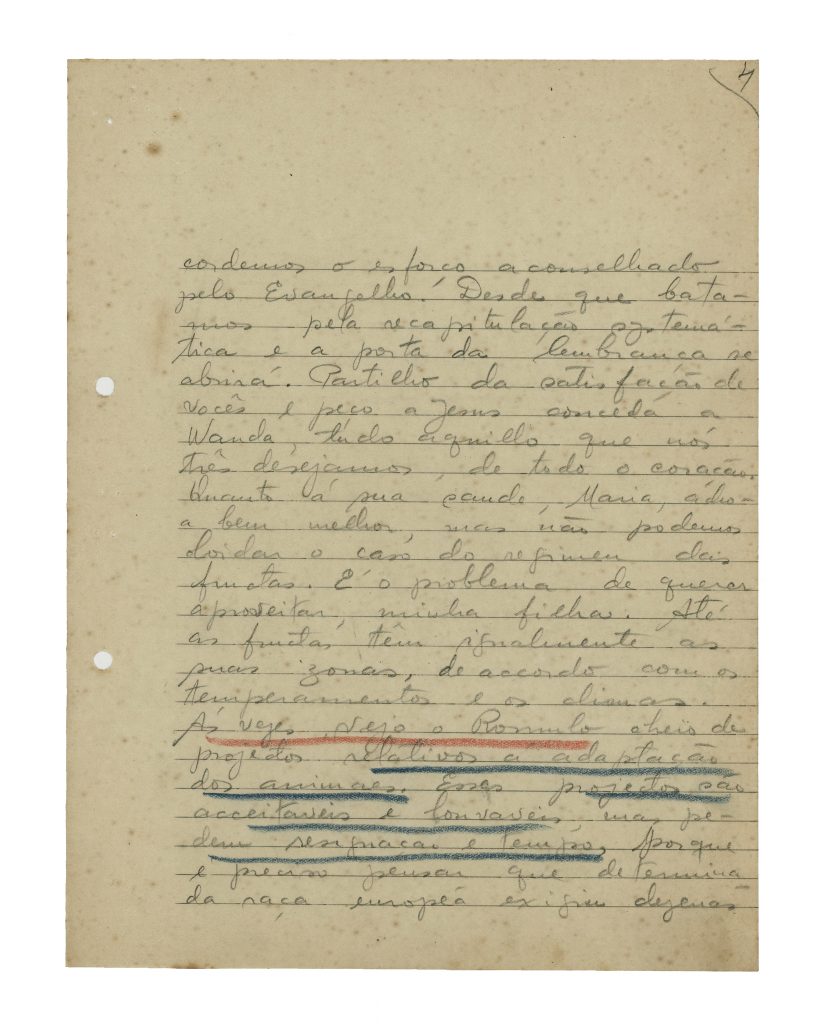 4
cordemos o esforço aconselhado
pelo Evangelho! Desde que bata-
mos pela recapitulação systemá-
tica e a porta da lembrança se
abrirá. Partilho da satisfação de
vocês e peço a Jesus concedá a
Wanda, tudo aquillo que nós
três desejamos, de todo o coração.
Quanto á sua saude, Maria, acho-
a bem melhor, mas não podemos
olvidar o caso do regimen das
fructas. É o problema de querer
aproveitar, minha filha. Até
as fructas têm igualmente as
suas zonas, de accordo com os
temperamentos e os climas.
Ás vezes, vejo o Romulo cheio de
projectos relativos á adaptação
dos animaes. Esses projectos são
acceitaveis e louvaveis, mas pe-
dem resignação e tempo, porque
é preciso pensar que determina
da raça européa exigiu dezenas